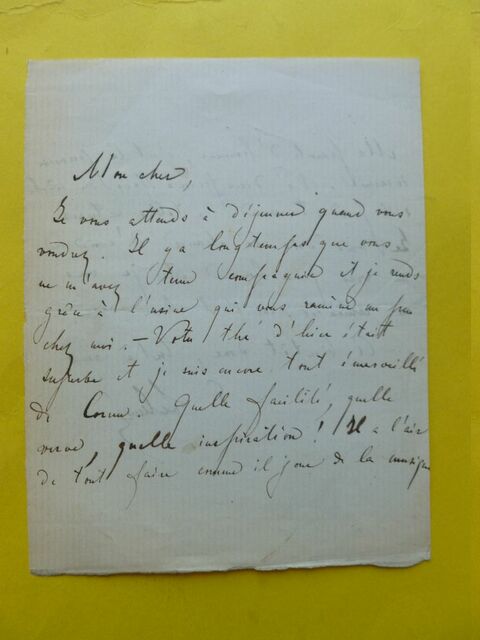 Mon cher,
Je vous attends à déjeuner quand vous
voudrez. Il y a longtemps que vous
ne m'avez tenu compagnie et je rends
grâce à l'usine qui vous ramène un peu
chez moi. — Votre thé d'hier était
superbe et je suis encore tout émerveillé
de . Quelle facilité, quelle
verve, quelle inspiration ! Il a l'air
de tout faire comme il joue de la musique